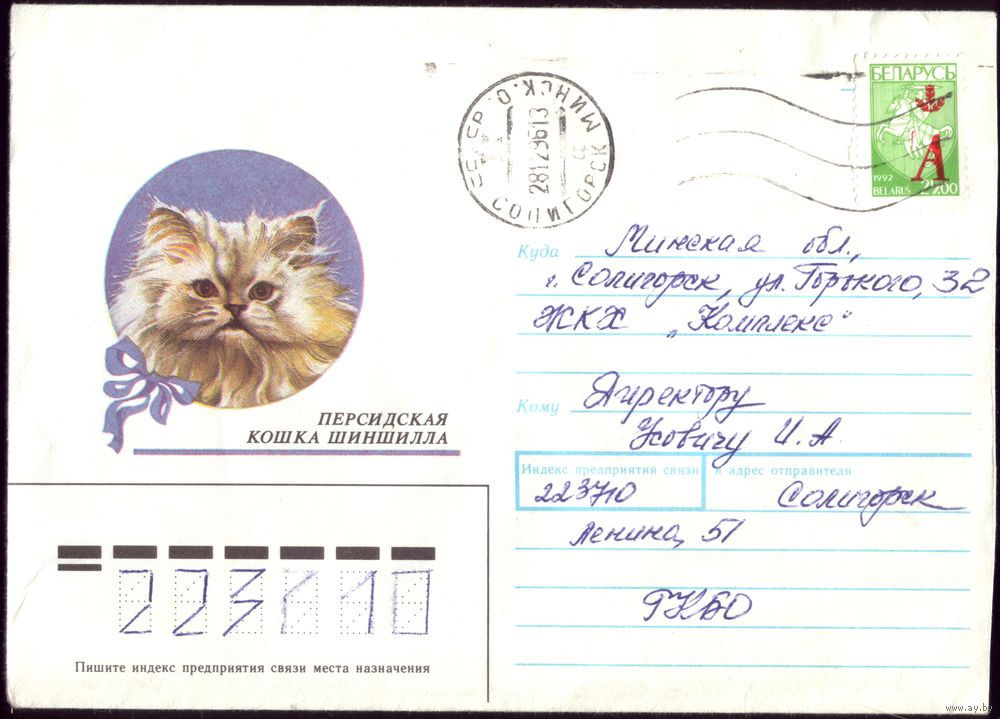 БЕЛАРУСЬ
А
1992
BELARUS 25.00
МИНСК. О.
28129613
СОЛИГОРСК
Куда Минская обл.,
г. Солигорск, ул. Горького, 32
ЖКХ "Комплекс"
ПЕРСИДСКАЯ
КОШКА ШИНШИЛЛА
Кому Директору
И. А.
Индекс предприятия связи и адрес отправителя
223710 Солигорск
Ленина, 51
ГКБО
223710
Пишите индекс предприятия связи места назначения
www.ay.by